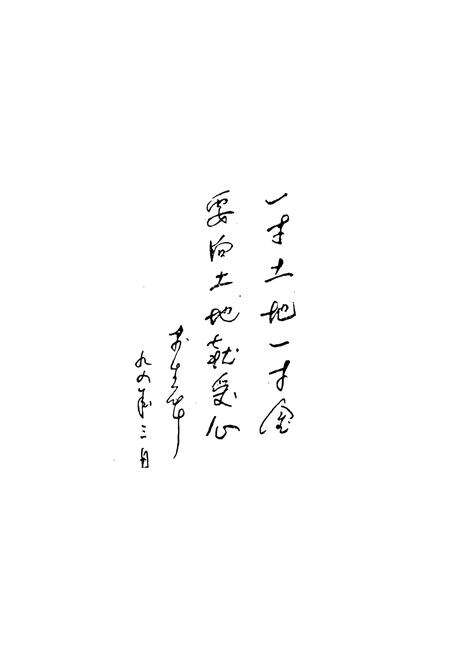 一寸土地一寸金
要向土地献爱心
九四年三月